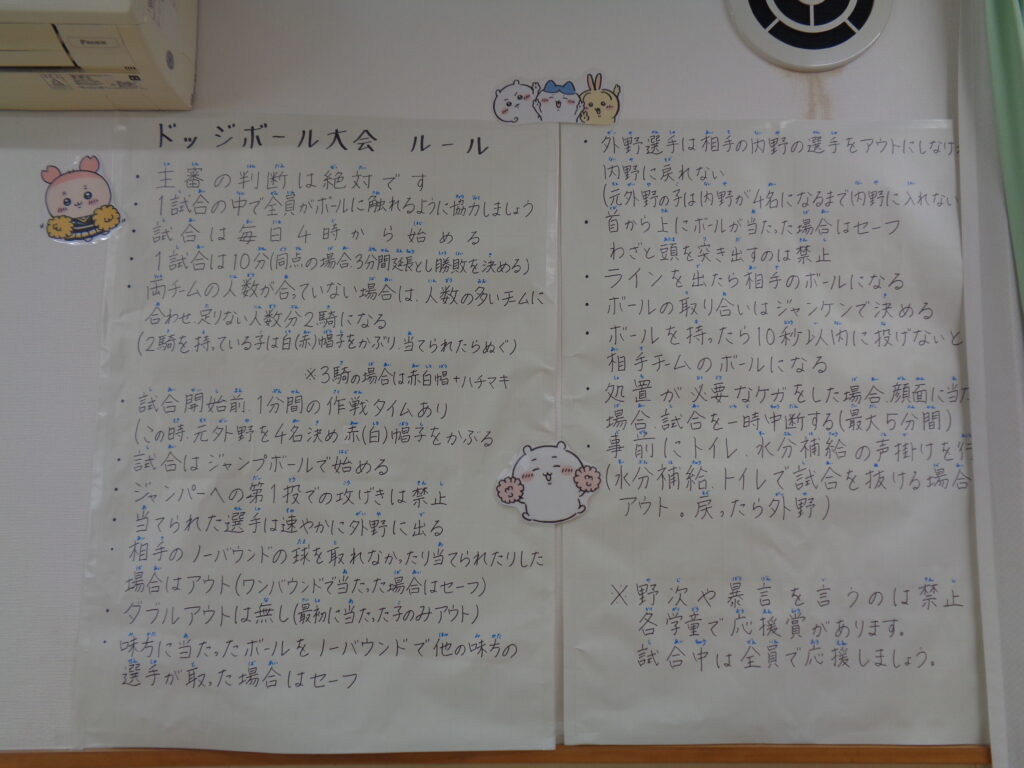 ドッジボール大会 ルール
・主審の判断は絶対です
・1試合の中で全員がボールに触れるように協力しましょう
・試合は毎日4時から始める
・1試合は10分(同点の場合、3分間延長とし勝敗を決める)
・両チームの人数が合っていない場合は、人数の多いチームに
合わせ、足りない人数分2騎になる
(2騎を持っている子は白(赤)帽子をかぶり、当てられたらぬぐ)
※3騎の場合は赤白帽+ハチマキ
・試合開始前、1分間の作戦タイムあり
(この時、元外野を4名決め赤(白)帽子をかぶる
・試合はジャンプボールで始める
・ジャンパーへの第1投での攻げきは禁止
・当てられた選手は速やかに外野に出る
・相手のノーバウンドの球を取れなかったり当てられたりした
場合はアウト(ワンバウンドで当たった場合はセーフ)
・ダブルアウトは無し(最初に当たった子のみアウト)
・味方に当たったボールをノーバウンドで他の味方の
選手が取った場合はセーフ
・外野選手は相手の内野の選手をアウトにしなけ
内野に戻れない
(元外野の子は内野が4名になるまで内野に入れない
・首から上にボールが当たった場合はセーフ
わざと頭を突き出すのは禁止
・ラインを出たら相手のボールになる
・ボールの取り合いはジャンケンで決める
・ボールを持ったら10秒以内に投げないと
相手チームのボールになる
・処置が必要なケガをした場合、顔面に当た
場合、試合を一時中断する(最大5分間)
・事前にトイレ、水分補給の声掛けを行
(水分補給、トイレで試合を抜ける場合
アウト。戻ったら外野)
※野次や暴言を言うのは禁止
各学童で応援賞があります。
試合中は全員で応援しましょう。